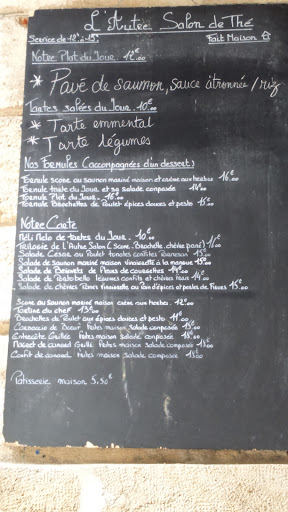 L'Autre Salon de Thé
Service de 12h à 15h Fait Maison
Notre Plat du Jour 12€00
* Pavé de saumon, sauce citronnée / riz
Tartes salées du Jour 10€00
* Tarte emmental
* Tarte légumes
Nos Formules (accompagnées d'un dessert)
Formule scone au saumon mariné maison et crème aux herbes 16€00
Formule tarte du Jour et sa salade composée 14€00
Formule Plat du Jour 16€00
Formule Brochettes de Poulet épices douces et pesto 15€00
Notre Carte
Méli Melo de tartes du Jour 10€00
Trilogie de L'Autre Salon (Scone, Brochette, chèvre pané)
Salade César au Poulet tomates confites Parmesan 13€00
Salade de saumon mariné maison vinaigrette à la mangue
Salade de Beignets de Fleurs de courgettes 14€00
Salade légumes confits et chèvre pané
Salade de chèvres
Scone au saumon mariné maison crème aux herbes 12€00
Tartine du chef 13€00
Brochettes de Poulet aux épices douces et pesto 11€00
Carpaccio de Boeuf Pates maison salade composée
Entrecôte Grillée Pates maison salade composée
Magret de canard Grillé Pates maison salade composée
Confit de canard Pates maison salade composée
Patisserie maison 5,50€